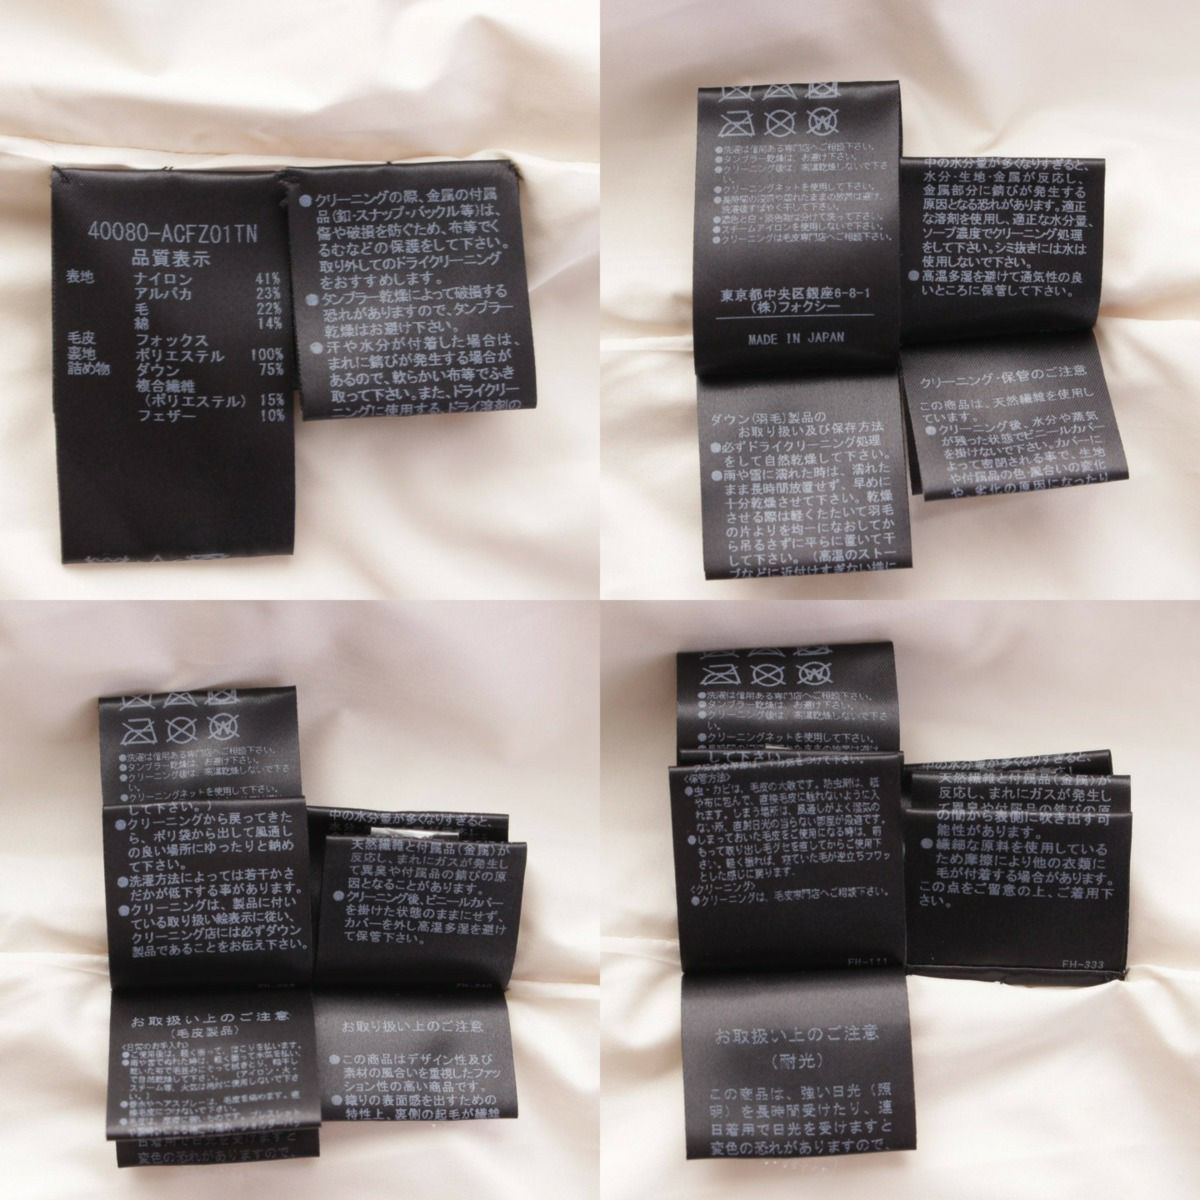 40080-ACFZ01TN
品質表示
表地 ナイロン 41%
アルパカ 23%
毛 22%
綿 14%
毛皮 フォックス
裏地 ポリエステル 100%
詰め物 ダウン 75%
複合繊維
(ポリエステル) 15%
フェザー 10%
●クリーニングの際、金属の付属
品(釦・スナップ・バックル等)は、
傷や破損を防ぐため、布等でく
るむなどの保護をして下さい。
取り外してのドライクリーニング
をおすすめします。
●タンブラー乾燥によって破損する
恐れがありますので、タンブラー
乾燥はお避け下さい。
●汗や水分が付着した場合は、
まれに錆びが発生する場合が
あるので、軟らかい布等でふき
取って下さい。また、ドライクリー
ニングに使用する、ドライ溶剤の
●洗濯は信用ある専門店へご相談下さい。
●タンブラー乾燥は、お避け下さい。
●クリーニング後は、高温乾燥しないで下さ
い。
●クリーニングネットを使用して下さい。
●濃色と白・淡色物は分けて洗って下さい。
●スチームアイロンを使用しないで下さい。
●クリーニングは毛皮専門店へご相談下さい。
東京都中央区銀座6-8-1
(株)フォクシー
MADE IN JAPAN
ダウン(羽毛)製品の
お取り扱い及び保存方法
●必ずドライクリーニング処理
をして自然乾燥して下さい。
●雨や雪に濡れた時は、濡れた
まま長時間放置せず、早めに
十分乾燥させて下さい。乾燥
させる際は軽くたたいて羽毛
の片よりを均一になおしてか
ら吊るさずに平らに置いて干
して下さい。(高温のストー
ブなどに近付けすぎない様に
中の水分量が多くなりすぎると、
水分・生地・金属が反応し、
金属部分に錆びが発生する
原因となる恐れがあります。適正
な溶剤を使用し、適正な水分量、
ソープ濃度でクリーニング処理
をして下さい。シミ抜きには水は
使用しないで下さい。
●高温多湿を避けて通気性の良
いところに保管して下さい。
クリーニング・保管のご注意
この商品は、天然繊維を使用し
ています。
●クリーニング後、水分や蒸気
が残った状態でビニールカバー
を掛けないで下さい。カバーに
よって密閉される事で、生地
や付属品の色・風合いの変化
や、劣化の原因になったり
●洗濯は信用ある専門店へご相談下さい。
●タンブラー乾燥は、お避け下さい。
●クリーニング後は、高温乾燥しないで下さ
い。
●クリーニングネットを使用して下さい。
して下さい。)
●クリーニングから戻ってきた
ら、ポリ袋から出して風通し
の良い場所にゆったりと納め
て下さい。
●洗濯方法によっては若干かさ
だかが低下する事があります。
●クリーニングは、製品に付い
ている取り扱い絵表示に従い、
クリーニング店には必ずダウン
製品であることをお伝え下さい。
お取扱い上のご注意
(毛皮製品)
〈日常のお手入れ〉
日着用で日光を受けますと
変色の恐れがありますので、
中の水分量が多くなりすぎると、
天然繊維と付属品(金属)が
反応し、まれにガスが発生し
て異臭や付属品の錆びの原
因となることがあります。
●クリーニング後、ビニールカバー
を掛けた状態のままにせず、
カバーを外し高温多湿を避け
て保管下さい。
お取り扱い上のご注意
●この商品はデザイン性及び
素材の風合いを重視したファッ
ション性の高い商品です。
●織りの表面感を出すための
特性上、裏側の起毛が繊維
●洗濯は信用ある専門店へご相談下さい。
●タンブラー乾燥は、お避け下さい。
●クリーニング後は、高温乾燥しないで下さ
い。
●クリーニングネットを使用して下さい。
〈保管方法〉
●虫・カビは、毛皮の大敵です。防虫剤は、紙
や布に包んで、直接毛皮に触れないように入
れます。しまう場所は、風通しがよく湿気の
ない所、直射日光の当らない部屋が最適です。
●しまっておいた毛皮をご使用になる時は、前
もって取り出し毛グセを直してからご使用下
さい。軽く振れば、寝ていた毛が逆立ちフワッ
とした感じに戻ります。
〈クリーニング〉
●クリーニングは、毛皮専門店へご相談下さい。
FH-111
お取扱い上のご注意
(耐光)
この商品は、強い日光(照
明)を長時間受けたり、連
日着用で日光を受けますと
変色の恐れがありますので、
中の水分量が多くなりすぎると、
天然繊維と付属品(金属)が
反応し、まれにガスが発生し
て異臭や付属品の錆びの原
の間から表側に吹き出す可
能性があります。
●繊細な原料を使用している
ため摩擦により他の衣類に
毛が付着する場合があります。
この点をご留意の上、ご着用下
さい。
FH-333